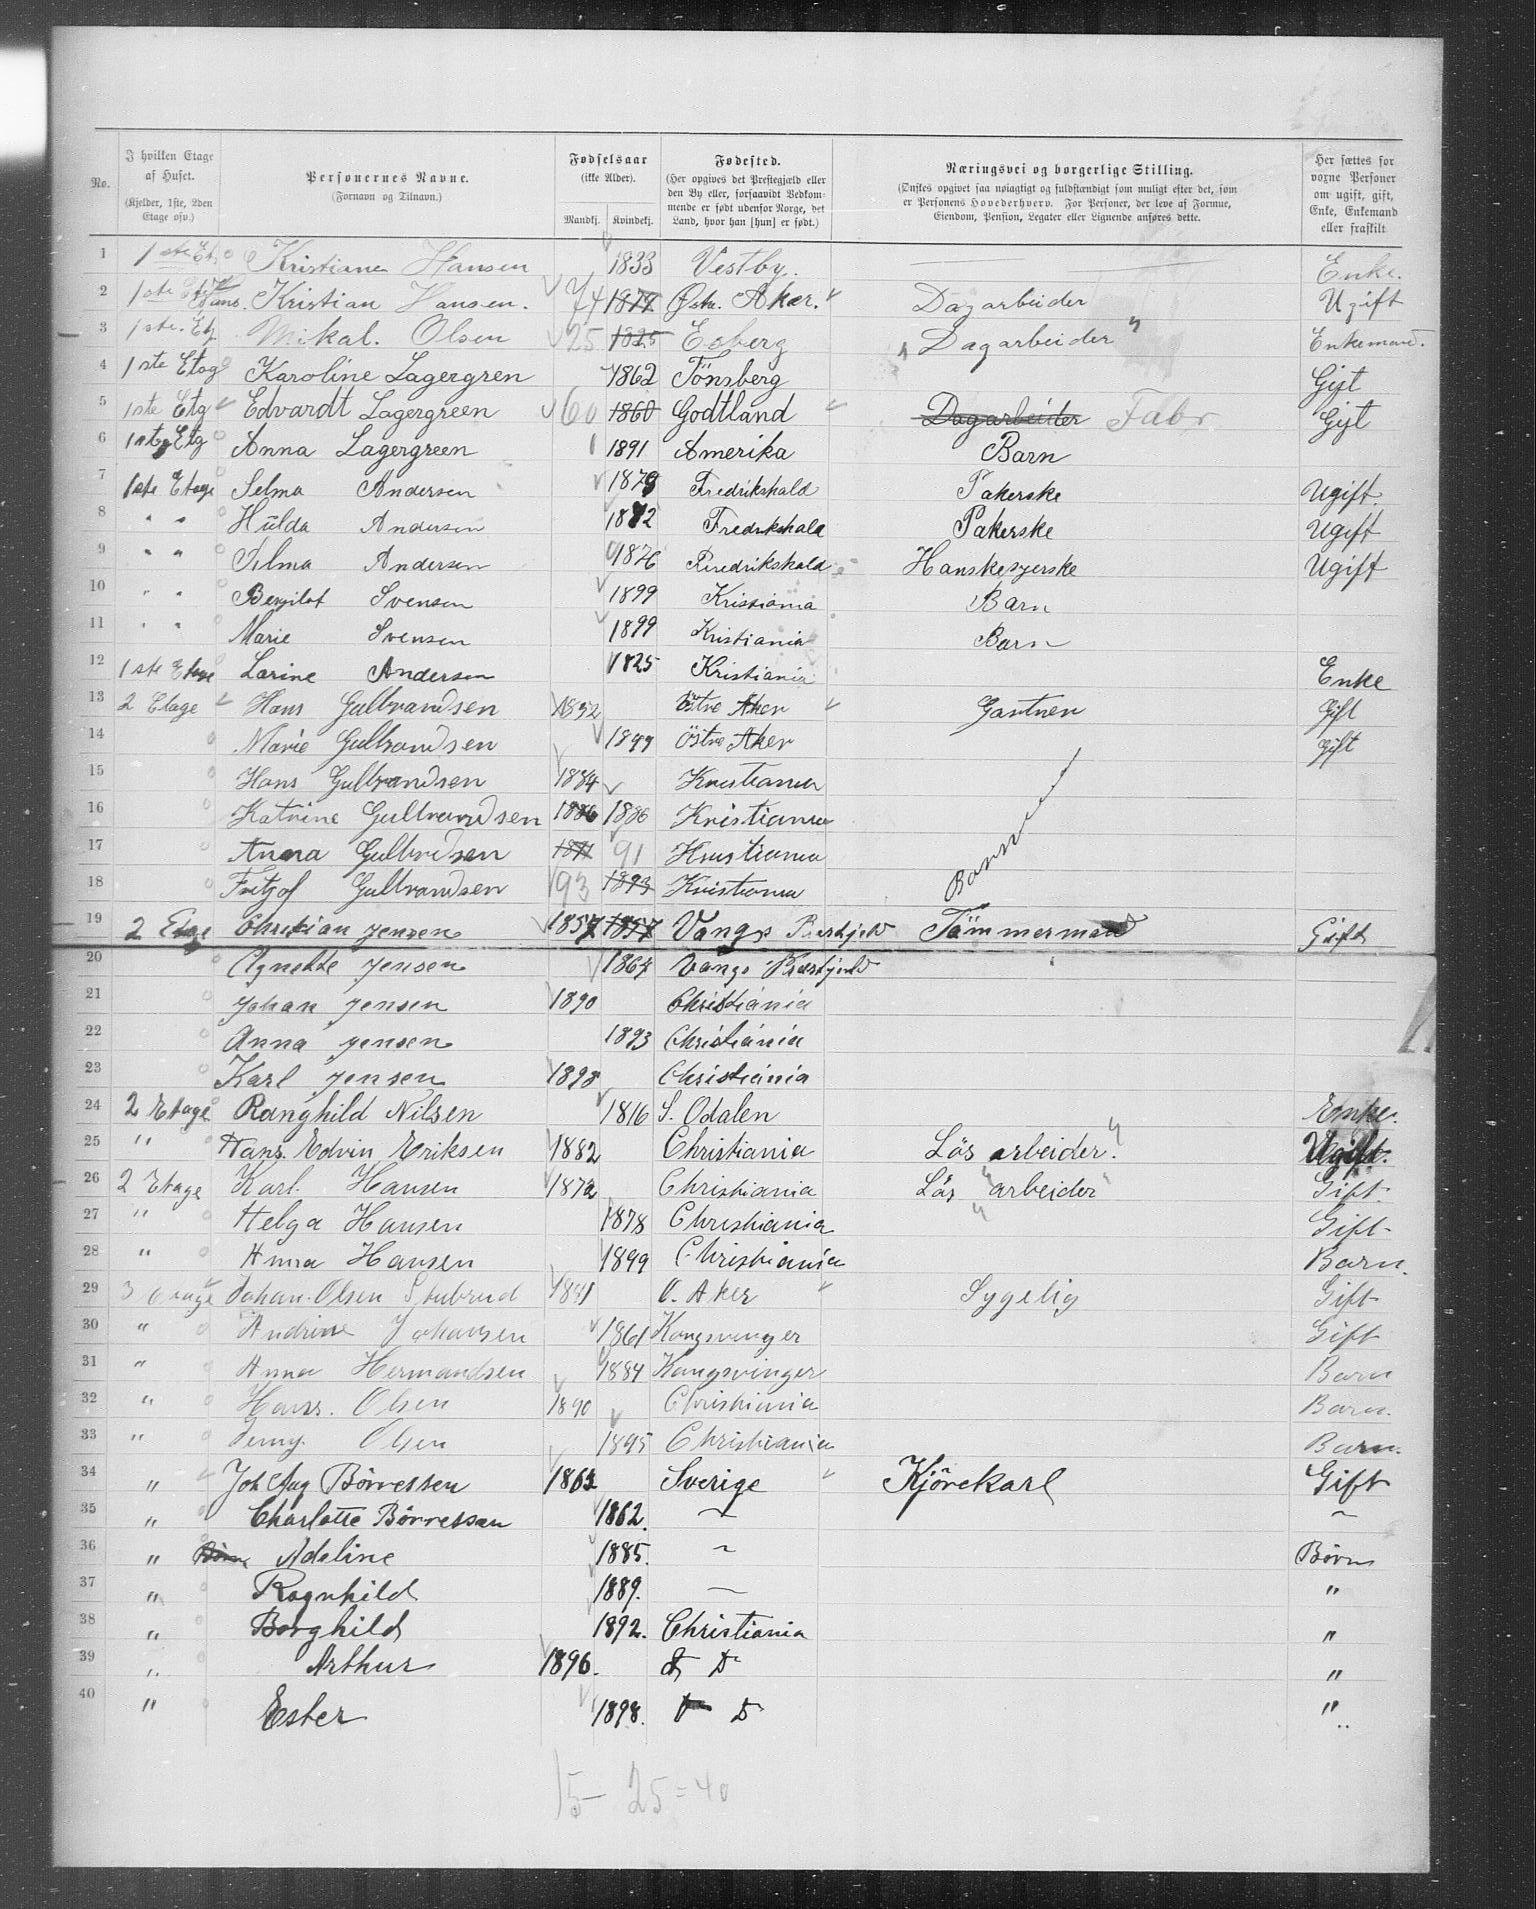 No. I hvilken Etage af Huset. (Kjelder, 1ste, 2den Etage osv.) Personernes Navne. (Fornavn og Tilnavn.) Fødselsaar (ikke Alder). Mandkj. Kvindekj. Fødested. (Her opgives det Prestegjæld eller den By eller, forsaavidt Vedkommende er født udenfor Norge, det Land, hvor han [hun] er født.) Næringsvei og borgerlige Stilling. (Ønskes opgivet saa nøiagtigt og fuldstændigt som muligt efter det, som er Personens Hovederhverv. For Personer, der leve af Formue, Eiendom, Pension, Legater eller Lignende anføres dette. Her sættes for voxne Personer om ugift, gift, Enke, Enkemand eller fraskilt
1 1ste Et. Kristiane Hansen 1833 Vestby. Enke.
2 1ste Kristian Hansen. 74 1874 Østr. Aker. Dagarbeider Ugift
3 1ste. Etg Mikal. Olsen 25 1825 Eoberg Dagarbeider Enkemand.
4 1ste Etag Karoline Lagergren 1862 Tönsberg Gift
5 1ste Etg Edvardt Lagergreen 60 1860 Godtland Dagarbeider Fabr. Gift
6 1ste Etg Anna Lagergreen 1891 Amerika Barn
7 1ste Etage Selma Andersen 1879 Fredrikshald Pakerske Ugift.
8 " " Hulda Andersen 1872 Fredrikshald Pakerske Ugift
9 " " Selma Andersen 1876 Fredrikshald Hanskesyerske Ugift
10 " " Bergliot Svensen 1899 Kristiania Barn
11 " " Marie Svensen 1899 Kristiania Barn
12 1ste Etage Larine Andersen 1825 Kristiania Enke
13 2 Etage Hans Gulbrandsen 1852 Östre Aker Gartner Gift
14 Marie Gulbrandsen 1849 Östre Aker Gift
15 Hans Gulbrandsen 1884 Kristiania
16 Katrine Gulbrandsen 1886 1886 Kristiania
17 Anna Gulbrdsen 1891 91 Kristiania
18 Fritjof Gulbrandsen 93 1893 Kristiania
19 2 Etage Christian Jensen 1857 1857 Vangs Prestjeld Tömmermand Gift
20 Agnette Jensen 1864 Vangs Præstjeld
21 Johan Jensen 1890 Christiania
22 Anna Jensen 1893 Christiania
23 Karl Jensen 1898 Christiania
24 2 Etage Ranghild Nilsen 1816 S. Odalen Enke.
25 " Hans. Edvin Eriksen 1882 Christiania Lös arbeider. Ugift.
26 2 Etage Karl. Hansen 1872 Christiania Lös arbeider Gift.
27 " Helga Hansen 1878 Christiania Gift
28 " Anna Hansen 1899 Christiania Barn.
29 3 Etage Johan. Olsen Stubrud 1841 O. Aker Sygelig Gift
30 " Andrine Johansen 1861 Kongsvinger Gift
31 " Anna Hermandsen 1884 Kongsvinger Barn
32 " Hans. Olsen 1890 Christiania Barn.
33 " Jenny. Olsen 1895 Christiania Barn.
34 " Joh Aug Börresen 1863 Sverige Kjörekarl Gift
35 " Charlotte Börresen 1862. ~ ~
36 " Adeline 1885. ~ Börn
37 " Ragnhild 1889. — "
38 " Borghild 1892. Christiania "
39 " Arthur 1896. D "
40 " Ester 1898. D "
15 - 25 = 40